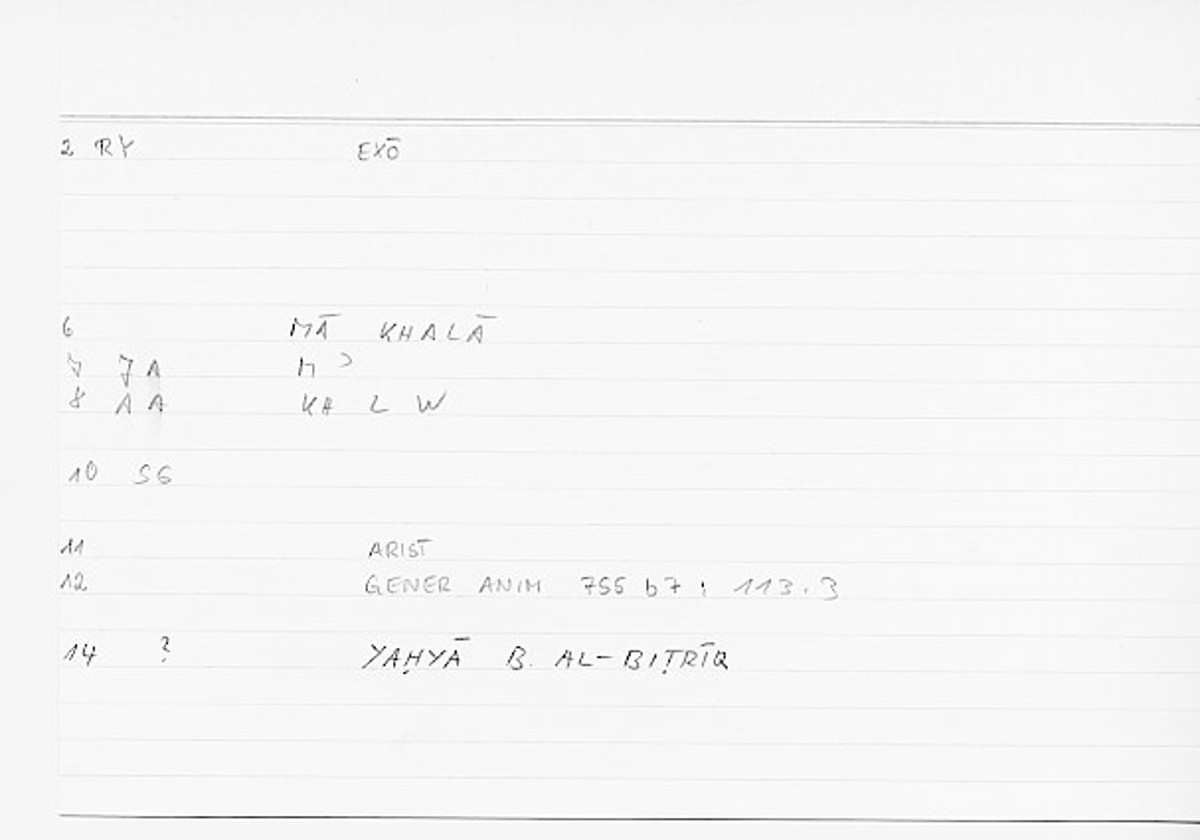 2 RY EXŌ
6 MĀ KHALĀ
7 JA M ʾ
8 AA KH L W
10 SG
11 ARIST
12 GENER ANIM 755 b7 : 113.3
14 ? YAḤYĀ B. AL-BIṬRĪQ